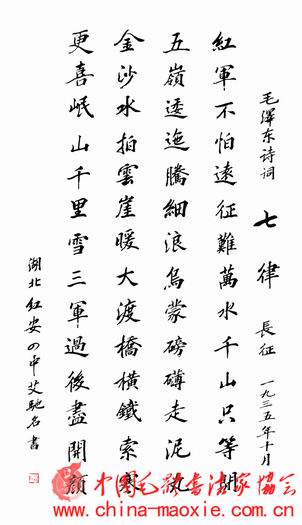 毛澤东诗词 七律 長征 一九三五年十月
紅軍不怕遠征難萬水千山只等閑
五嶺逶迤騰細浪烏蒙磅礴走泥丸
金沙水拍雲崖暖大渡橋橫鐵索寒
更喜岷山千里雪三軍過後盡開顏
湖北红安四中艾馳名書
中国毛歇书法家协会
www.china-maoxie.com